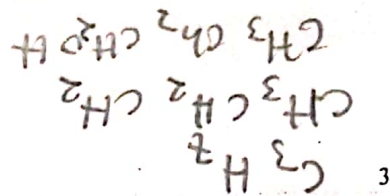 3
C3 H7
CH3 CH2 CH2
CH3 Ch2 CH2O H